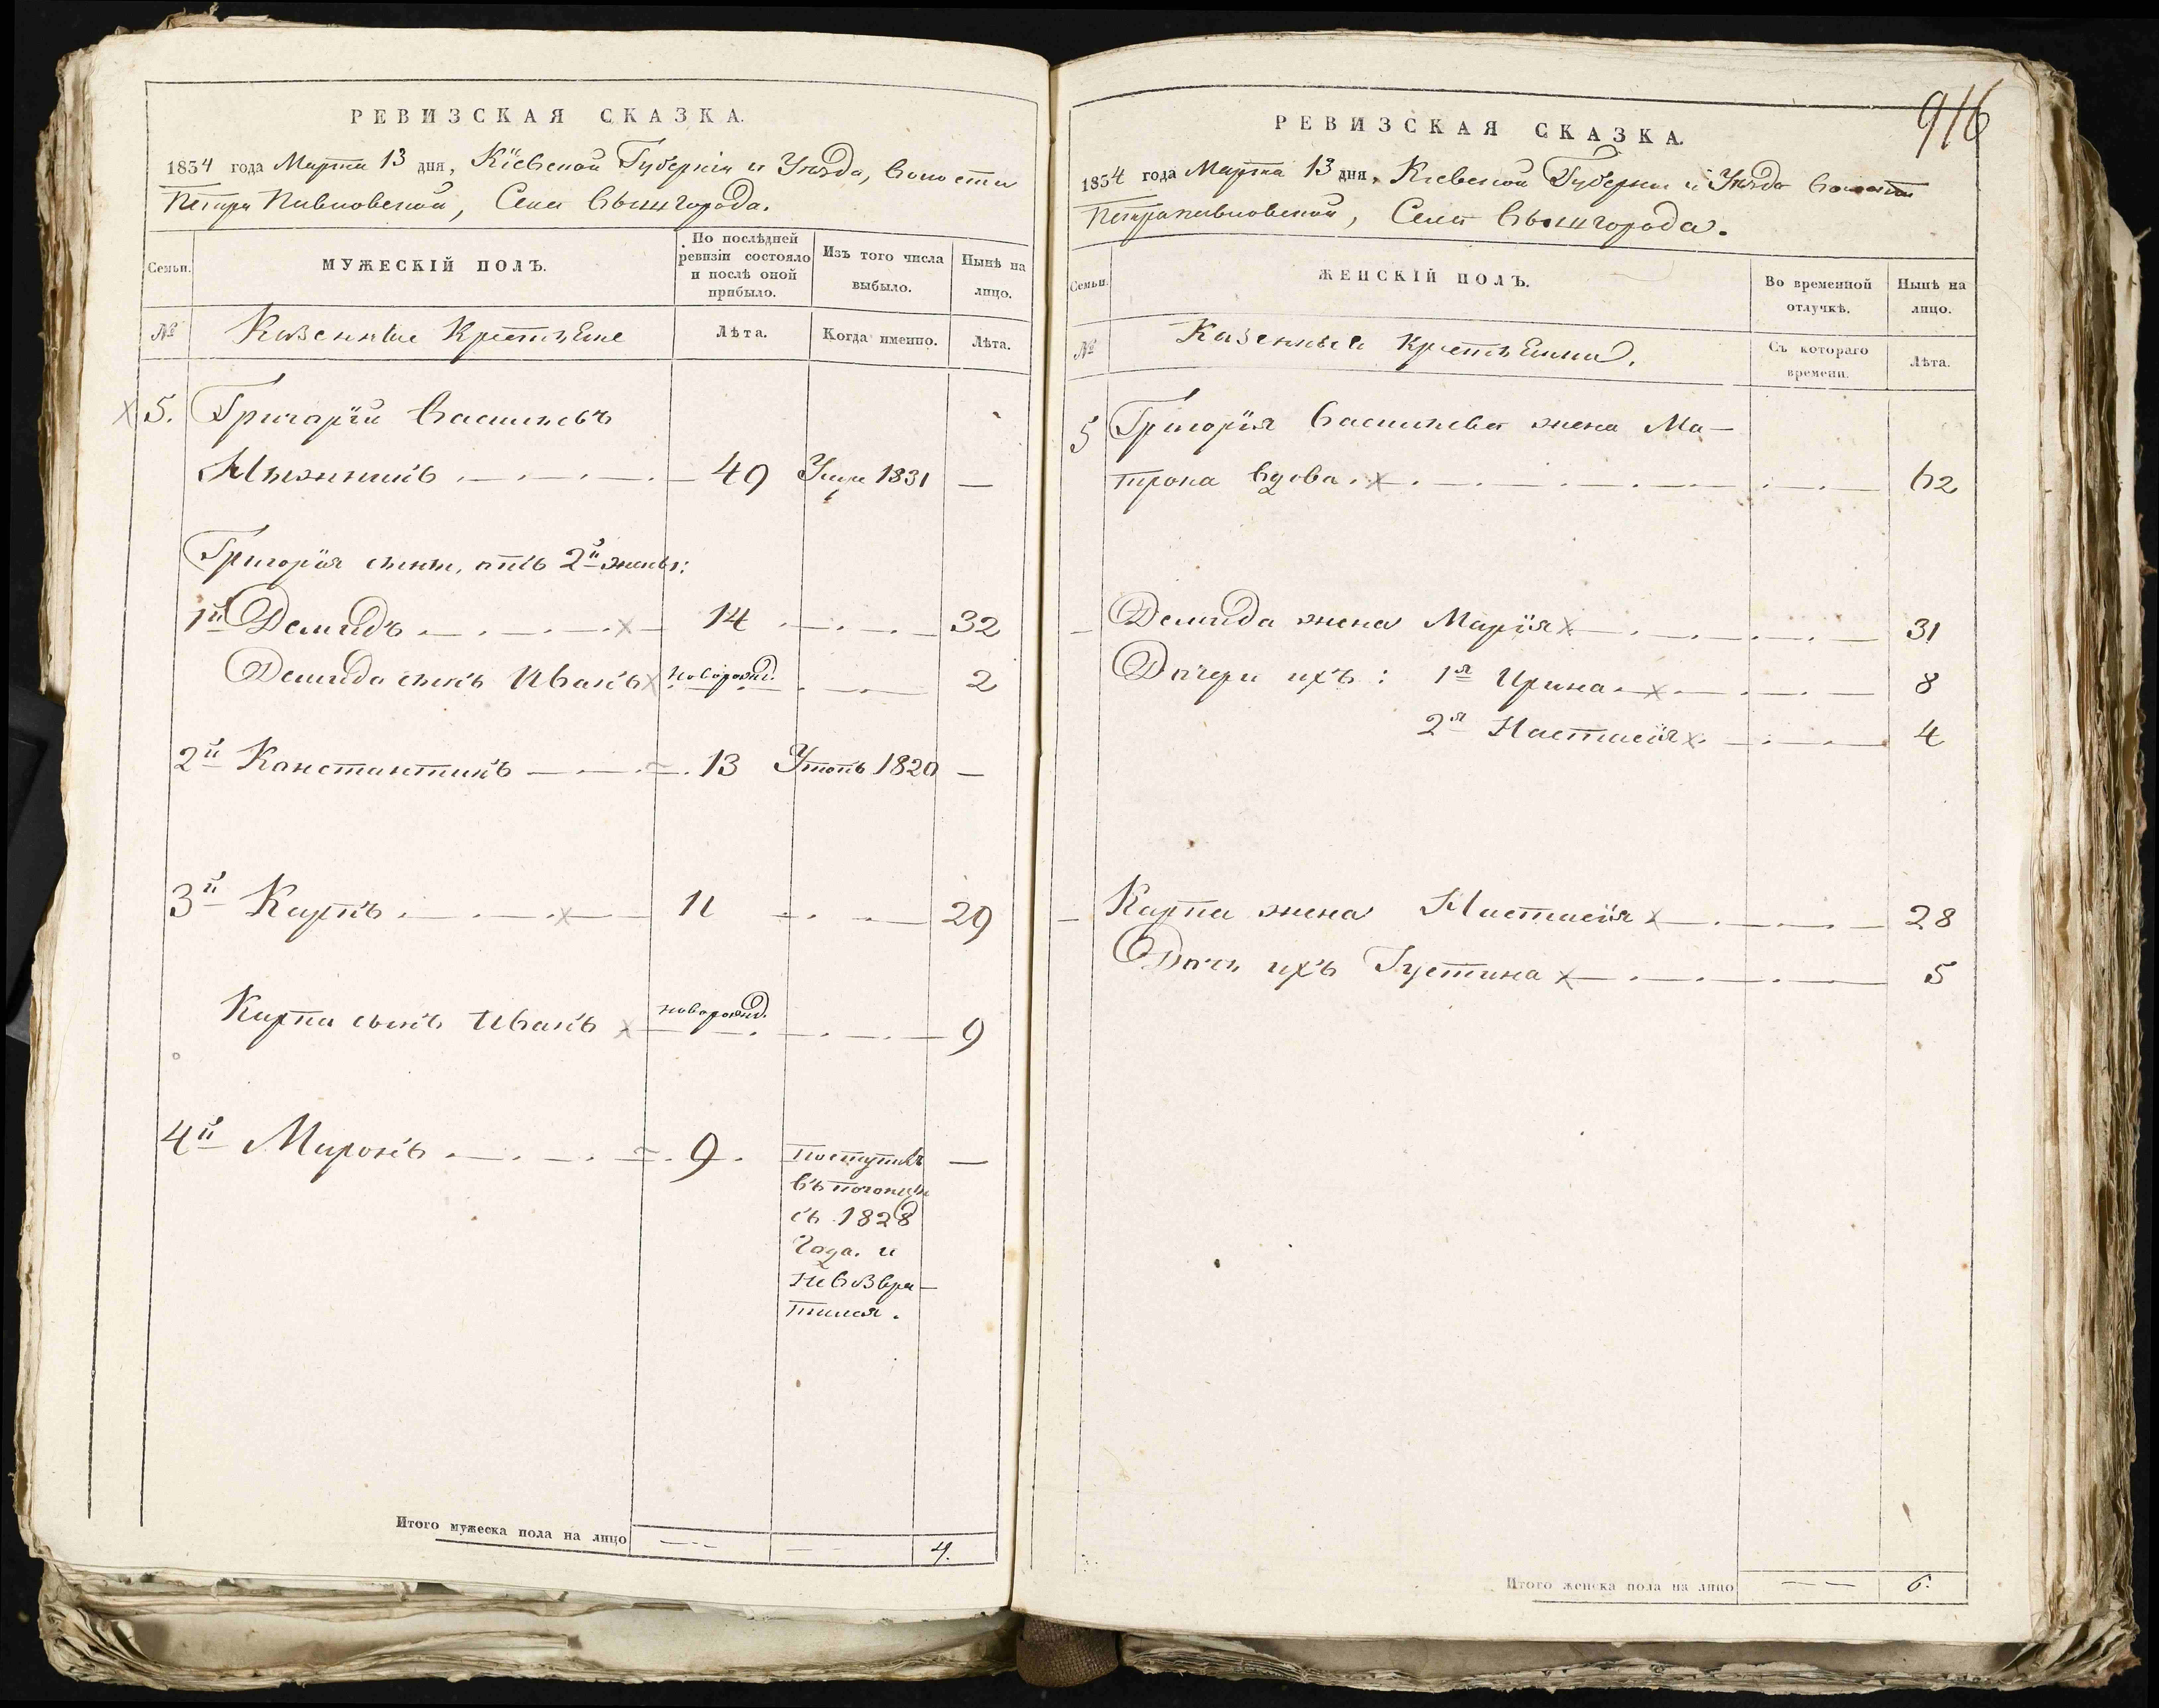 РЕВИЗСКАЯ СКАЗКА.
1834 года Марта 13 дня, Кіевской Губерніи и Уѣзда, Волости
Петро Павловской, Села Вышгорода.
Семьи.
МУЖЕСКІЙ ПОЛЪ.
По послѣдней ревизіи состояло и послѣ оной прибыло.
Изъ того числа выбыло.
Нынѣ на лицо.
№
Казенные Крестьяне
Лѣта.
Когда именно.
Лѣта.
5. Григорій Васильевъ
49 Умре 1831 —
Григорія сыны, отъ 2й жены:
1й Демидъ 14 32
Демида сынъ Иванъ новорожд. 2
2й Константинъ 13 Утопъ 1820 —
3й Карпъ 11 29
Карпа сынъ Иванъ новорожд. 9
4й Миронъ 9 Поступилъ —
въ погонцы
съ 1828
года. и
невозвра-
тился.
Итого мужеска пола на лицо 4.
916
РЕВИЗСКАЯ СКАЗКА.
1834 года Марта 13 дня, Кіевской Губерніи и Уѣзда Волости
Петропавловской, Села Вышгорода.
Семьи.
ЖЕНСКІЙ ПОЛЪ.
Во временной отлучкѣ.
Нынѣ на лицо.
№
Казенныя Крестьянки.
Съ котораго времени.
Лѣта.
5 Григорія Васильева жена Ма-
трона вдова. 62
Демида жена Марія 31
Дочери ихъ: 1я Ирина 8
2я Настасія 4
Карпа жена Настасія 28
Дочь ихъ Густина 5
Итого женска пола на лицо 6.